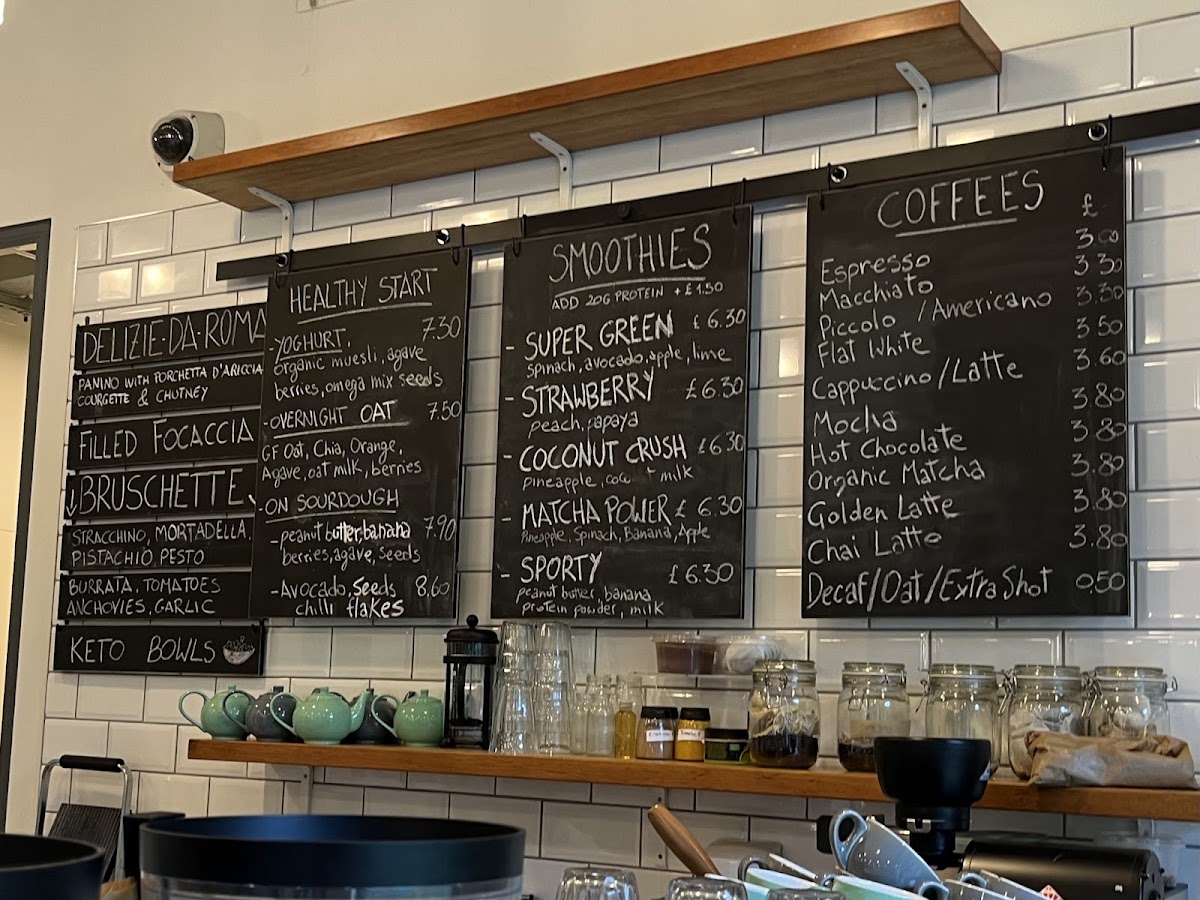 DELIZIE·DA·ROMA
PANINO WITH PORCHETTA D'ARICCIA
COURGETTE & CHUTNEY
FILLED FOCACCIA
↓BRUSCHETTE↓
STRACCHINO, MORTADELLA,
PISTACHIO PESTO
BURRATA, TOMATOES
ANCHOVIES, GARLIC
KETO BOWLS
HEALTHY START
YOGHURT, 7.30
organic muesli, agave
berries, omega mix seeds
-OVERNIGHT OAT 7.50
GF Oat, Chia, Orange,
Agave, oat milk, berries
-ON SOURDOUGH
-peanut butter, banana 7.90
berries, agave, seeds
-Avocado, Seeds 8,60
chilli flakes
SMOOTHIES
ADD 20G PROTEIN +£1.50
- SUPER GREEN £6.30
spinach, avocado, apple, lime
- STRAWBERRY £6.30
peach, papaya
- COCONUT CRUSH £6.30
pineapple, milk
- MATCHA POWER £6.30
Pineapple, Spinach, Banana, Apple
- SPORTY £6.30
peanut butter, banana
protein powder, milk
COFFEES £
Espresso 3.00
Macchiato 3.30
Piccolo /Americano 3.30
Flat White 3.50
Cappuccino/Latte 3.60
Mocha 3.80
Hot Chocolate 3.80
Organic Matcha 3.80
Golden Latte 3.80
Chai Latte 3.80
Decaf/Oat/Extra Shot 0.50